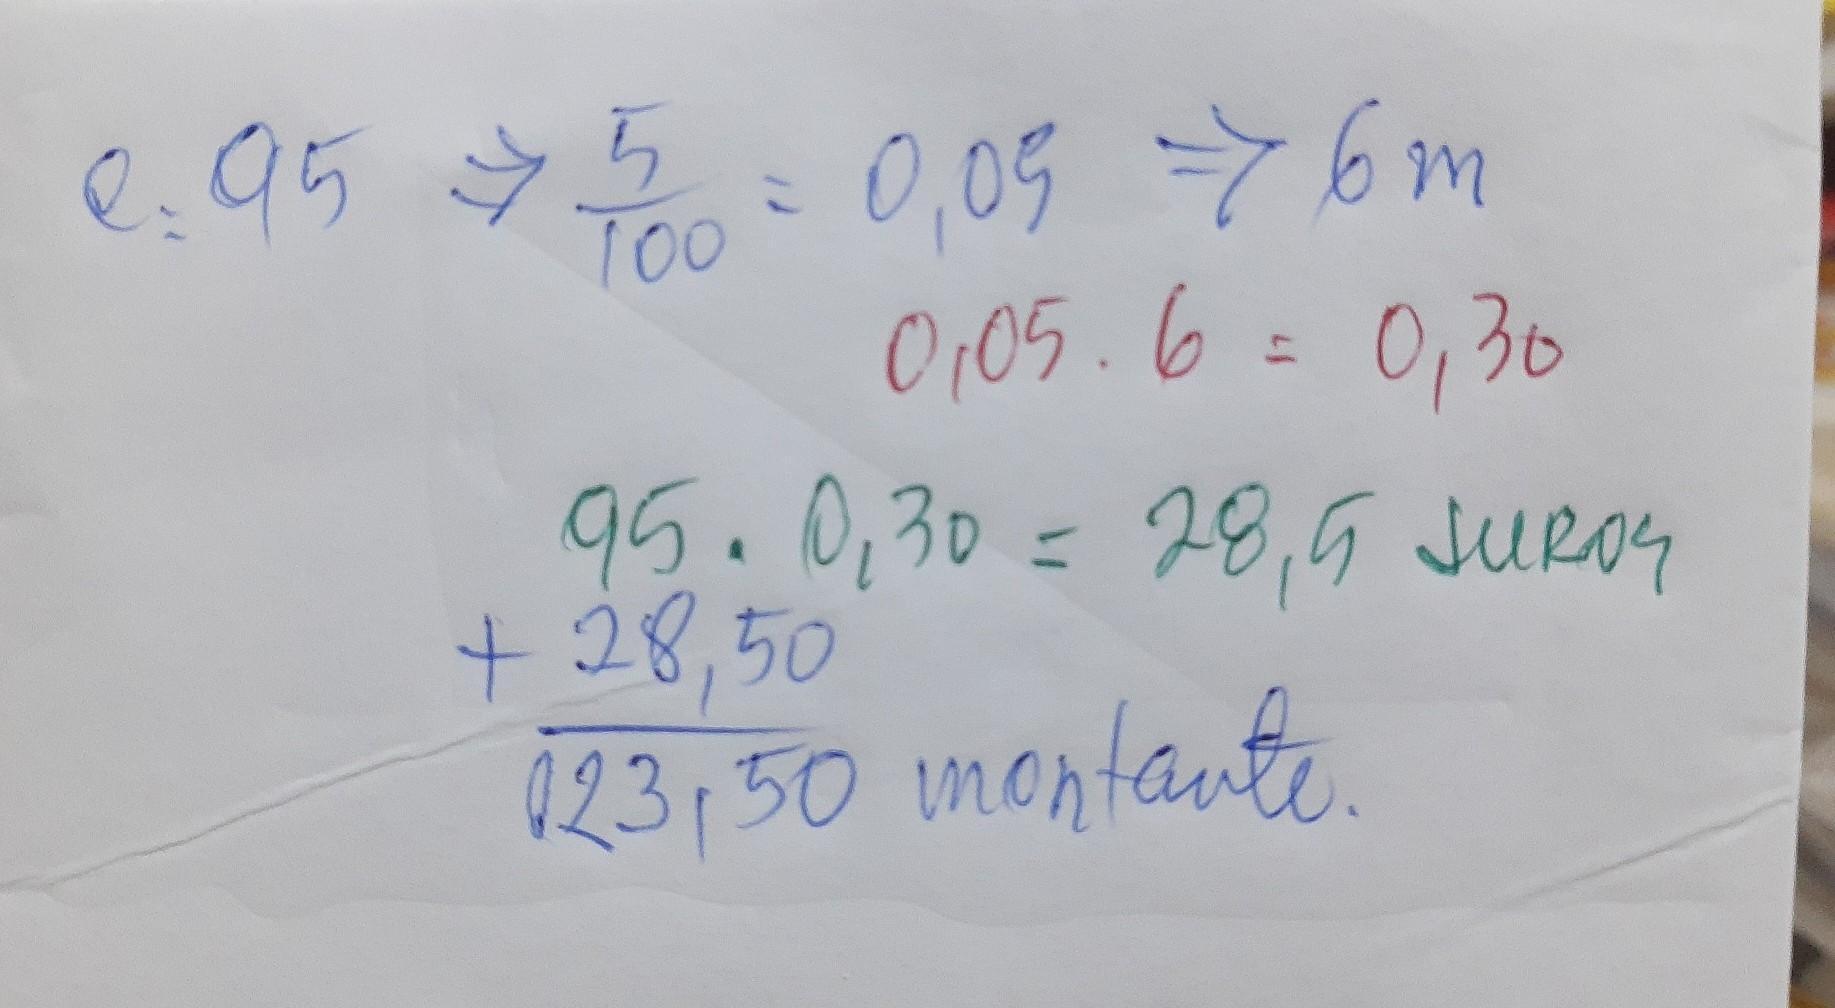 C = 95 ⇒ 5/100 = 0,05 ⇒ 6 m
0,05 . 6 = 0,30
95 . 0,30 = 28,5 JUROS
+ 28,50
123,50 montante.